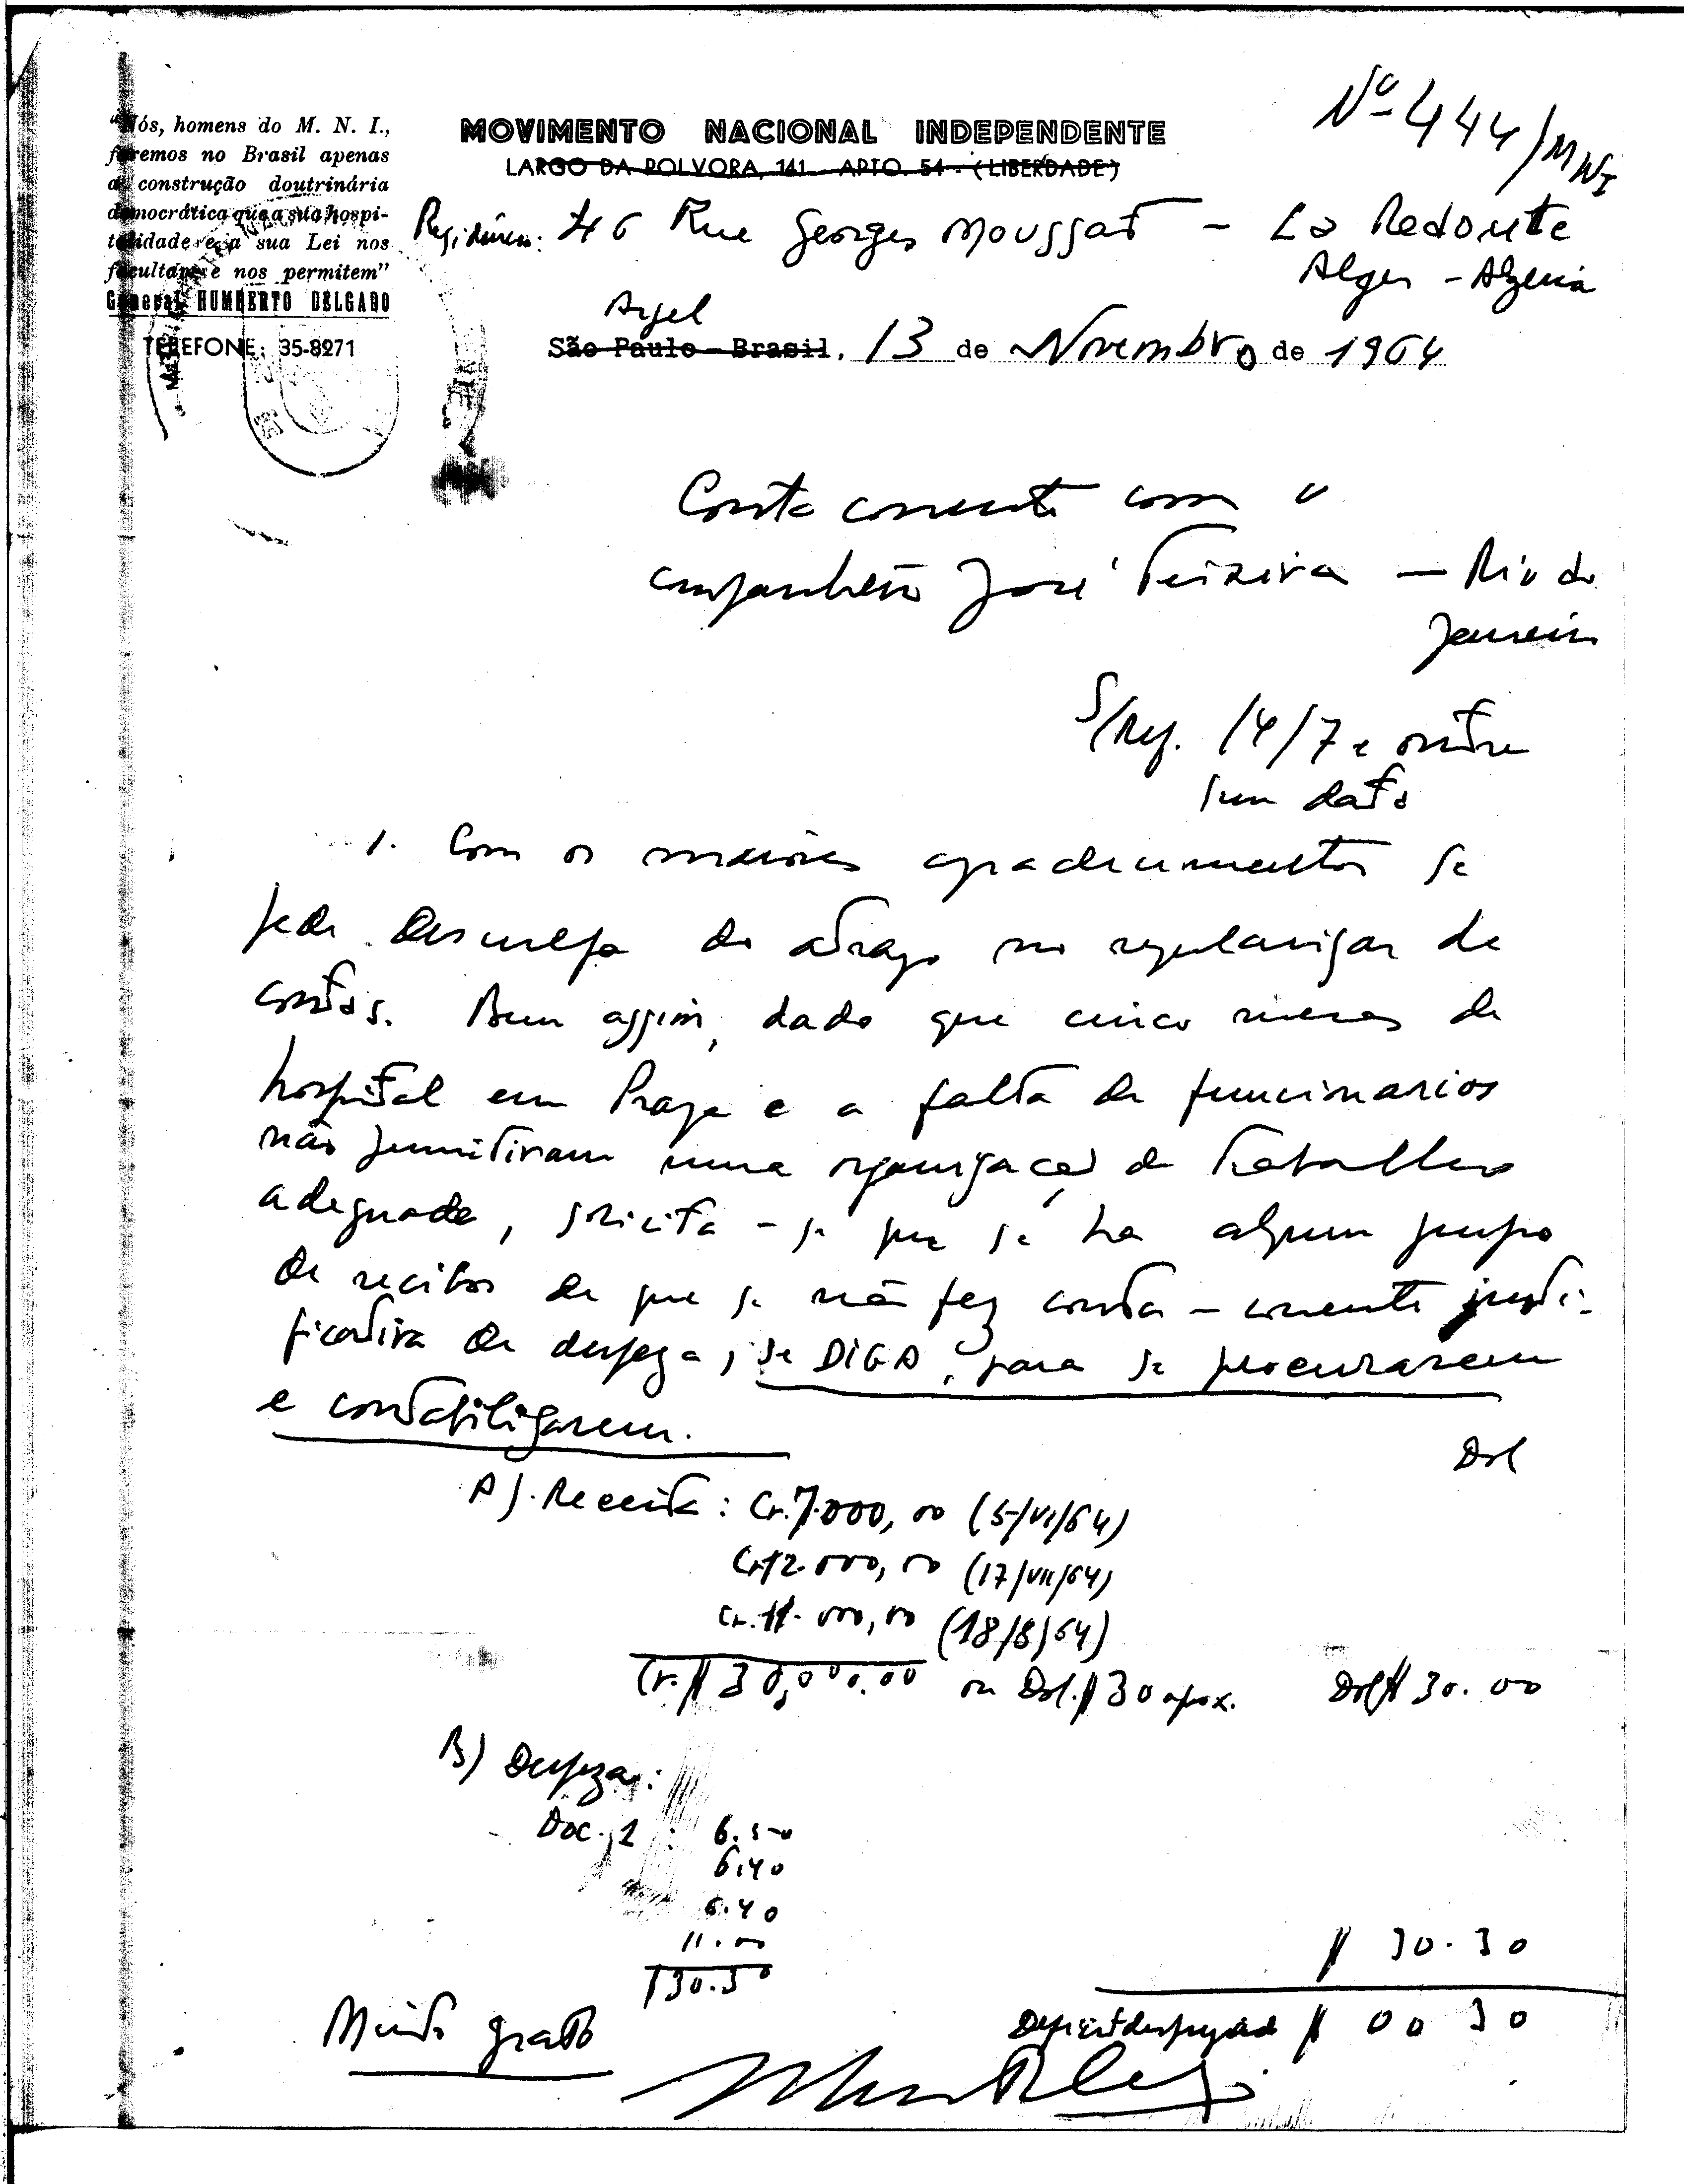 Nº 444/MNI
"Nós, homens do M. N. I.,
faremos no Brasil apenas
a construção doutrinária
democrática que a sua hospi-
talidade e a sua Lei nos
facultam e nos permitem"
General HUMBERTO DELGADO
TELEFONE: 35-8271
MOVIMENTO NACIONAL INDEPENDENTE
LARGO DA POLVORA, 141 - APTO. 54 - (LIBERDADE)
Residência: 46 Rue Georges Moussat - La Redoute
Alger - Algeria
Argel
São Paulo - Brasil, 13 de Novembro de 1964
Conta corrente com o
companheiro José Teixeira — Rio de
Janeiro
S/Ref. 14/7 e outra
sem data
1. Com os maiores agradecimentos se
pede desculpa do atrazo no regularisar de
contas. Bem assim, dado que cinco meses de
hospital em Praga e a falta de funcionarios
não permitiram uma organização de trabalho
adequada, solicita-se que se ha algum grupo
de recibos de que se não fez conta-corrente justi-
ficativa de despeza, se DIGA, para se procurarem
e contabilizarem.
Dol
A). Receita: Cr. 7.000,00 (5/VI/64)
Cr 12.000,00 (17/VII/64)
Cr. 11.000,00 (18/8/64)
Cr. $ 30,000.00 ou Dol. $ 30 aprox. Dol $ 30.00
B) Despeza:
Doc. 1 : 6.50
6.40
6.40
11.00
$ 30.30
$ 30.30
Deficit $ 00 30
Muito grato